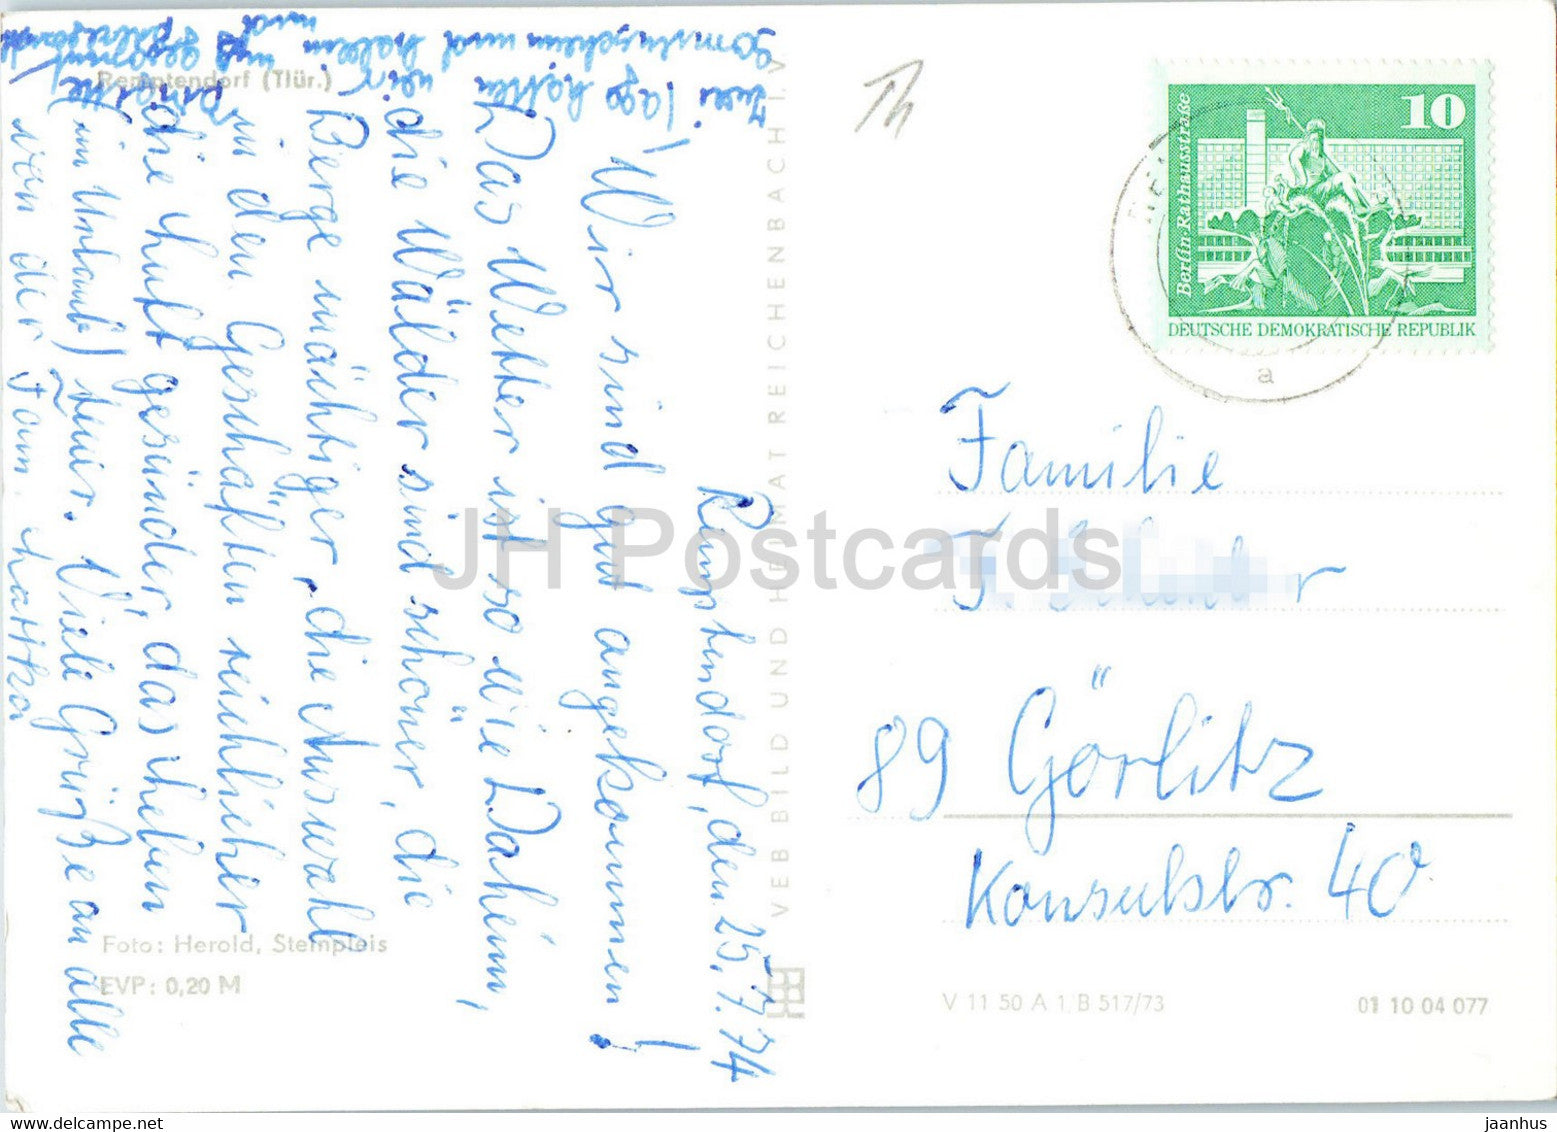 Remptendorf (Thür.)
Remptendorf, den 25.7.74
Wir sind gut angekommen!
Das Wetter ist so wie Daheim,
die Wälder sind schöner, die
Berge mächtiger, die Auswahl
in den Geschäften reichlicher
die Luft gesünder, das Leben
(im Urlaub) teuer. Viele Grüße an alle
von der Fam.
Zwei Tage hatten wir
Sonnenschein und haben uns
prächtig
Foto: Herold, Stempleis
EVP: 0,20 M
VEB BILD UND HEIMAT REICHENBACH I. V.
10
Berlin·Rathausstraße
DEUTSCHE DEMOKRATISCHE REPUBLIK
a
Th
Familie
89 Görlitz
Konsulstr. 40
V 11 50 A 1/B 517/73
01 10 04 077
JH Postcards
jaanhus